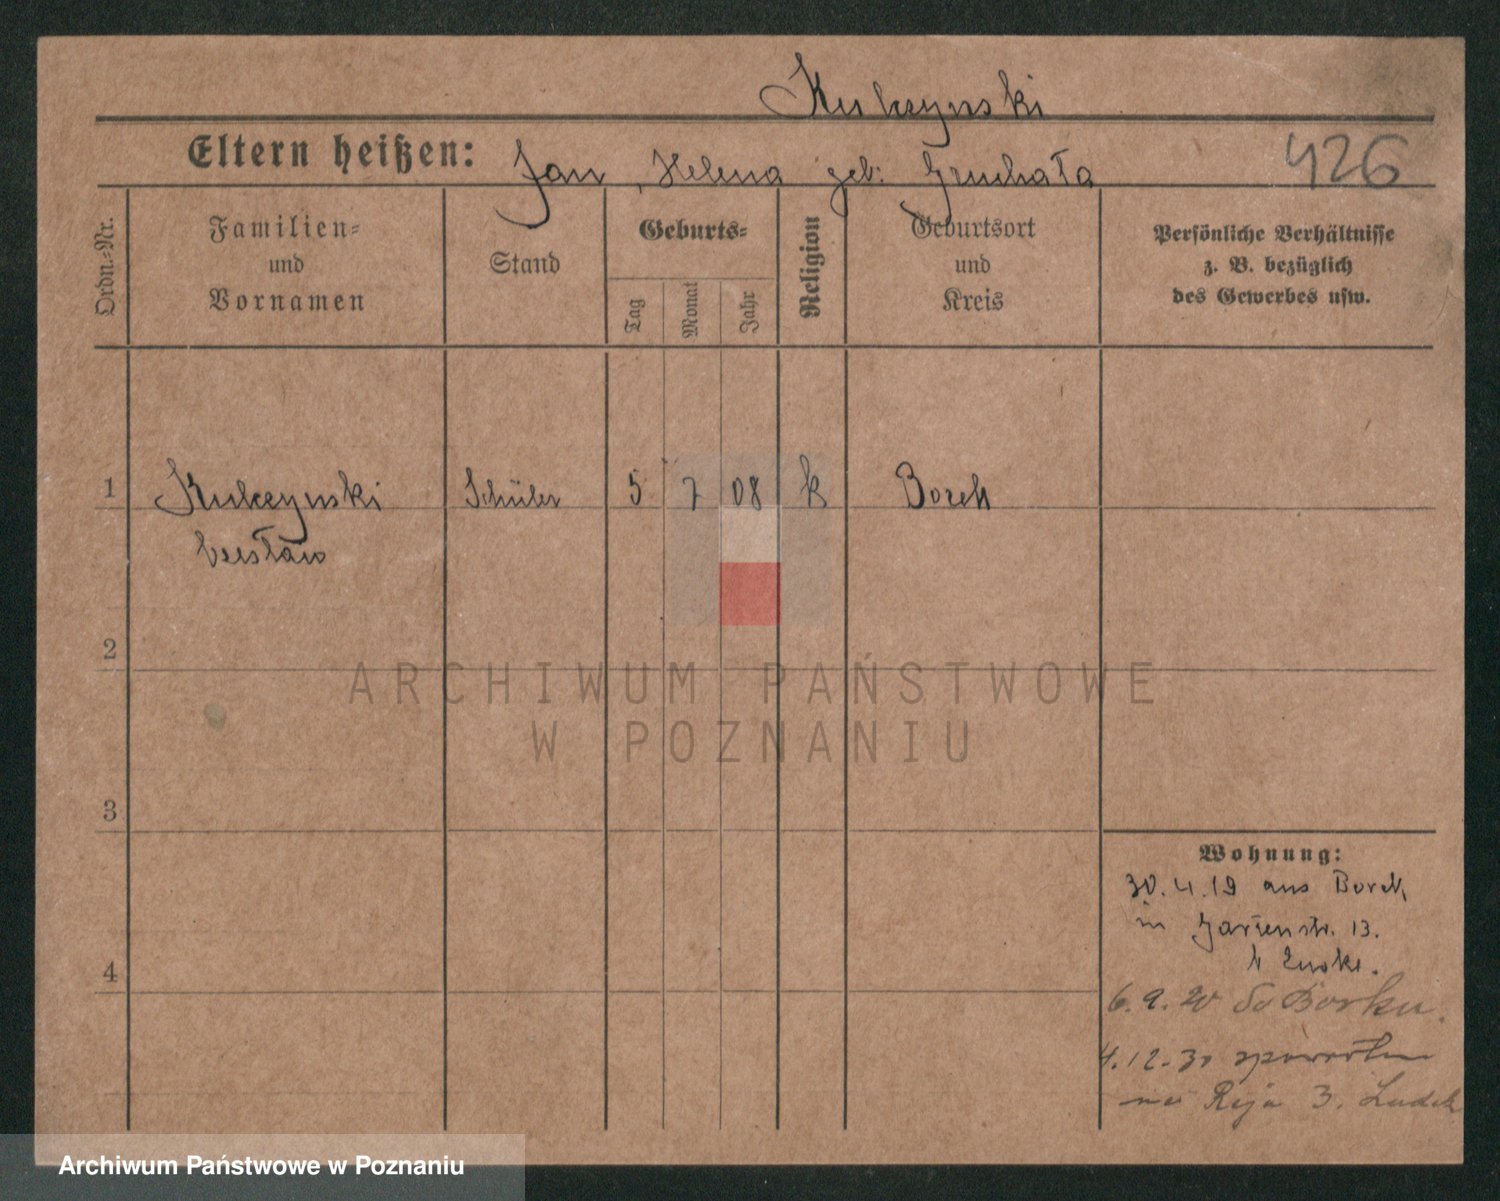 Kulczynski
Eltern heißen: Jan, Helena geb: Gruchała
426
Ordn.-Nr.
Familien-
und
Vornamen
Stand
Geburts-
Tag
Monat
Jahr
Religion
Geburtsort
und
Kreis
Persönliche Verhältnisse
z. B. bezüglich
des Gewerbes usw.
1 Kulczynski Schüler 5 7 08 k Borek
Czesław
2
3
4
Wohnung:
30.4.19 aus Borek
in 13.
6.9.20 do Borku.
4.12.30 zpowrotem
na Reja 3.
ARCHIWUM PAŃSTWOWE
W POZNANIU
Archiwum Państwowe w Poznaniu